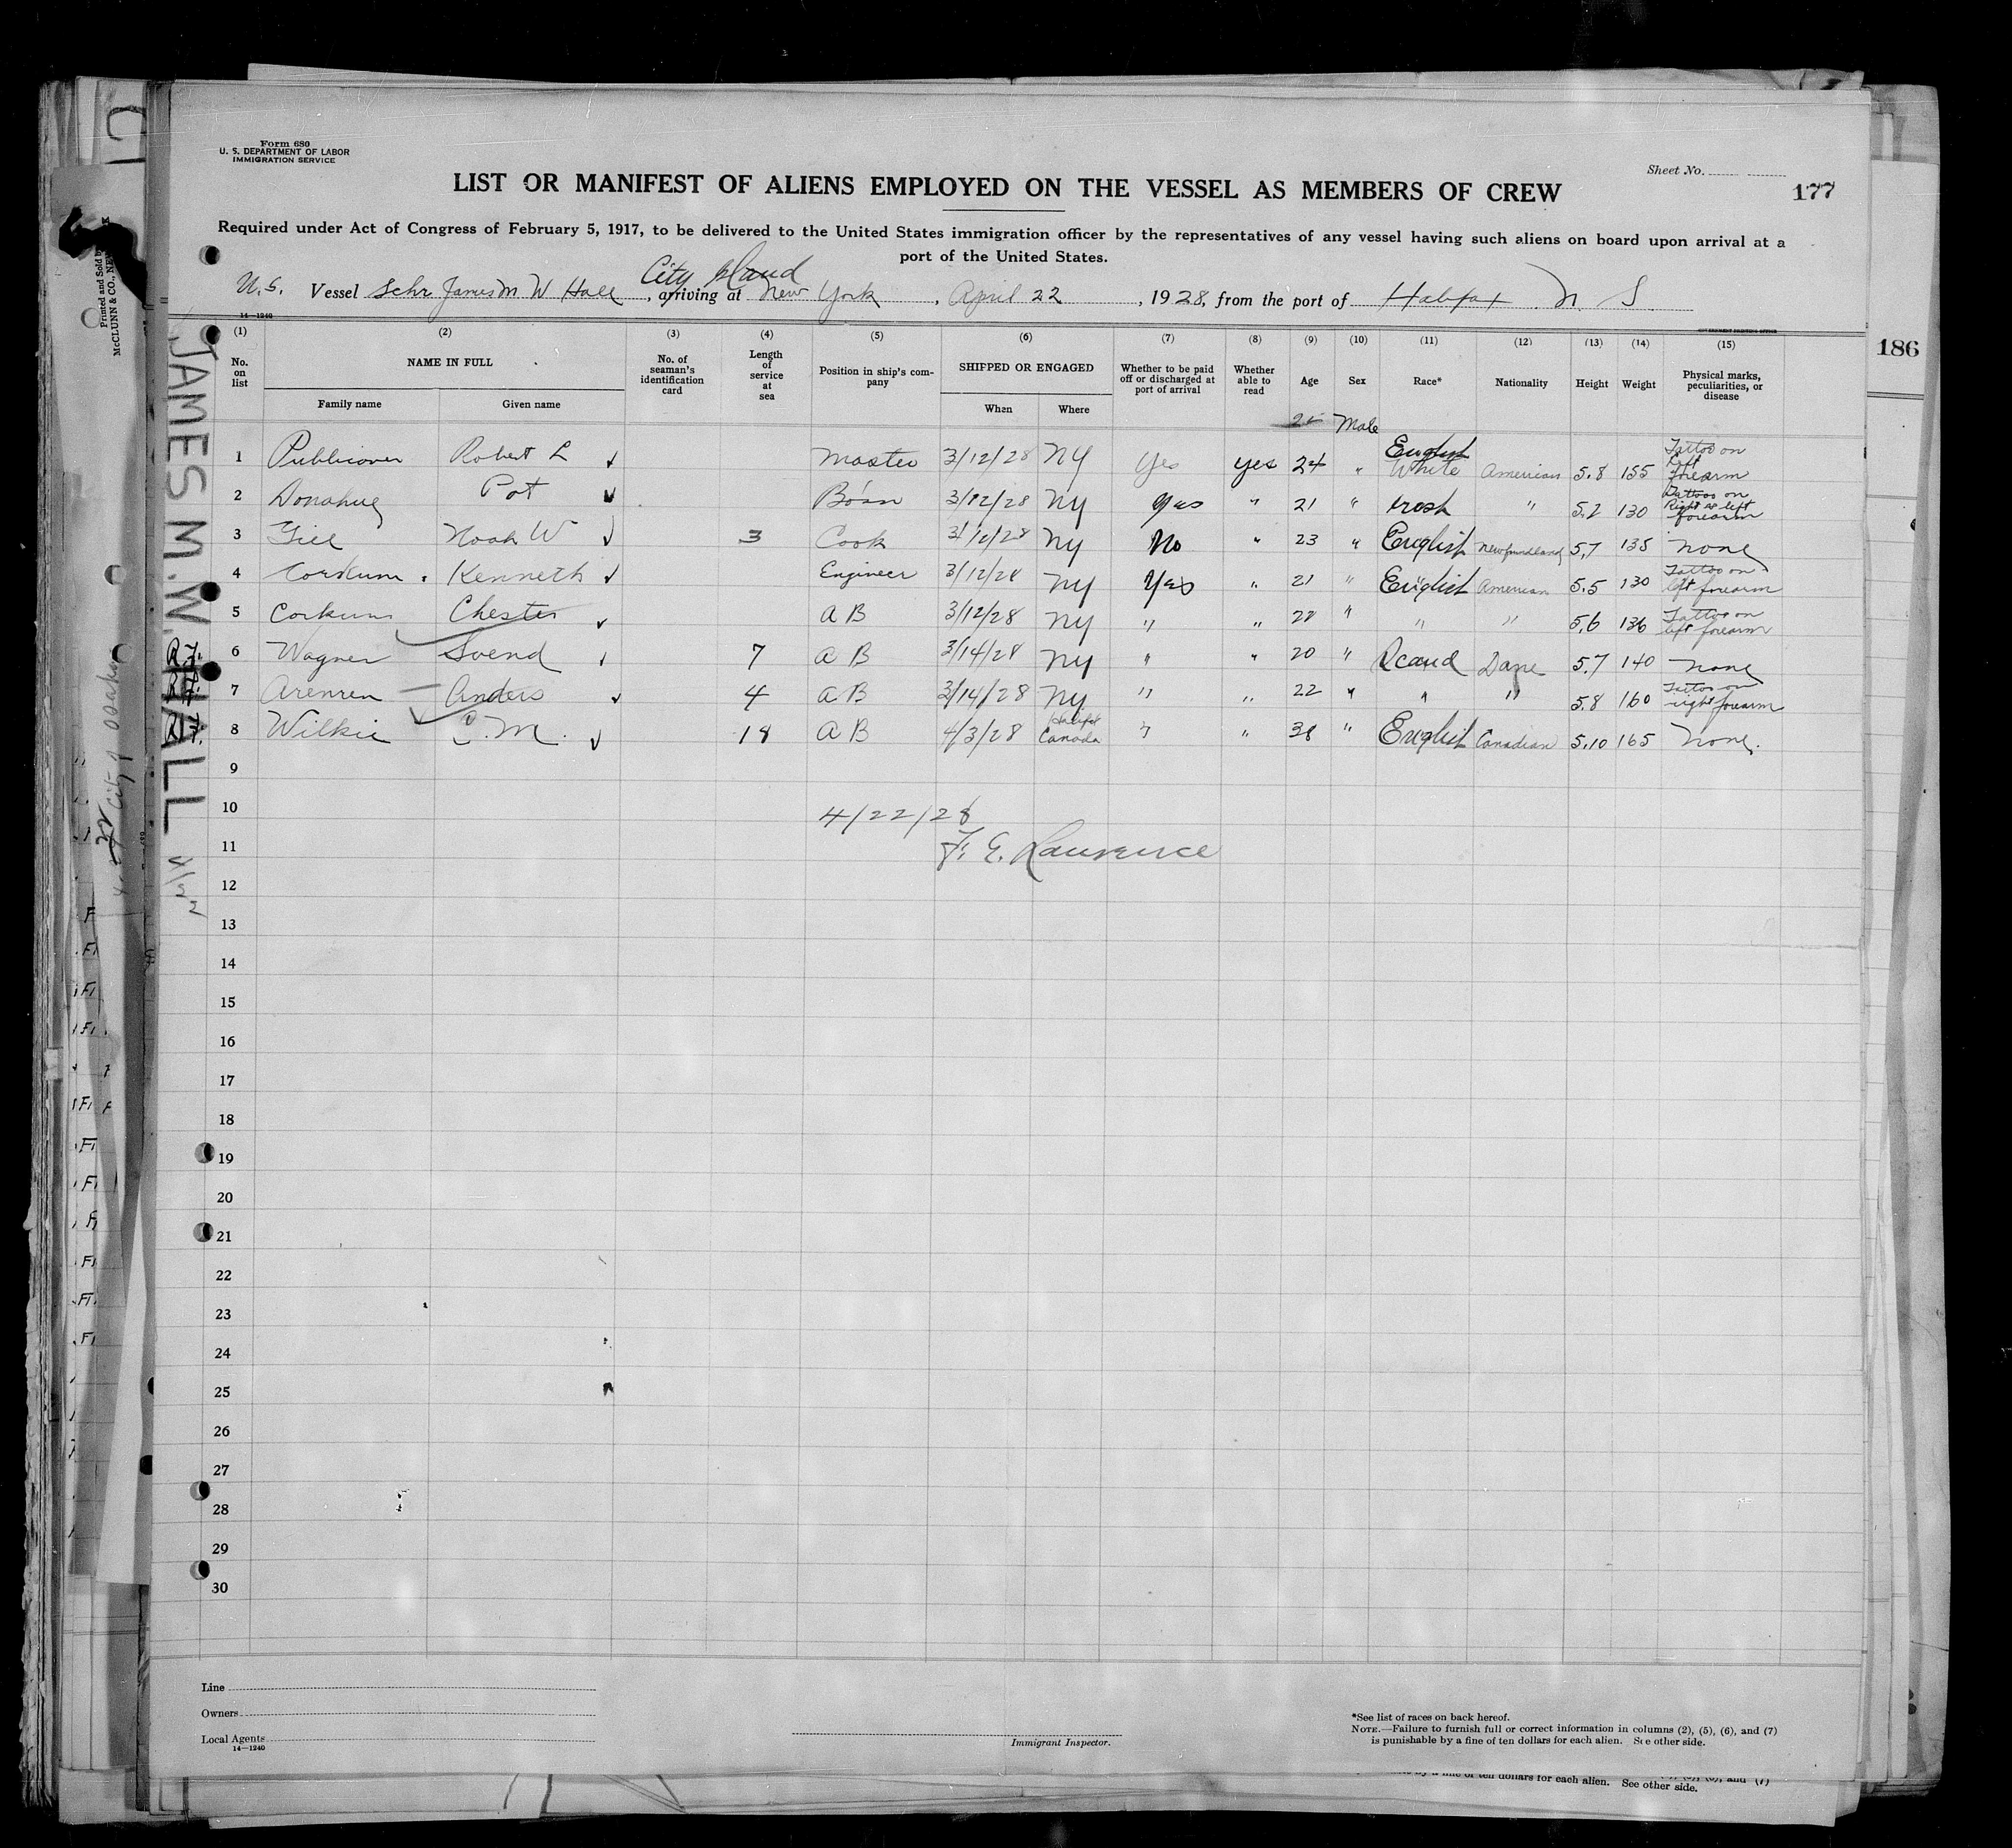 Form 680
U. S. DEPARTMENT OF LABOR
IMMIGRATION SERVICE
Sheet No.
177
LIST OR MANIFEST OF ALIENS EMPLOYED ON THE VESSEL AS MEMBERS OF CREW
Required under Act of Congress of February 5, 1917, to be delivered to the United States immigration officer by the representatives of any vessel having such aliens on board upon arrival at a
port of the United States.
City Island
U.S. Vessel Schr James M W Hall, arriving at New York, April 22, 1928, from the port of Halifax N S
14—1240
GOVERNMENT PRINTING OFFICE
(1) (2) (3) (4) (5) (6) (7) (8) (9) (10) (11) (12) (13) (14) (15)
No. on list NAME IN FULL No. of seaman's identification card Length of service at sea Position in ship's company SHIPPED OR ENGAGED Whether to be paid off or discharged at port of arrival Whether able to read Age Sex Race* Nationality Height Weight Physical marks, peculiarities, or disease
Family name Given name When Where
Male
1 Publicover Robert L Master 3/12/28 NY Yes yes 24 " English White American 5.8 155 Tattoo on Left forearm
2 Donahue Pat Bo'sn 3/12/28 NY Yes " 21 " Irosh " 5.2 130 Tattoos on Right & left forearm
3 Noah W 3 Cook 3/12/28 NY No " 23 " English Newfoundland 5.7 135 none
4 Corkum Kenneth Engineer 3/12/28 NY Yes " 21 " English American 5.5 130 Tattoo on left forearm
5 Corkum Chester A B 3/12/28 NY " " 22 " " " 5.6 136 Tattoo on left forearm
6 Wagner Svend 7 A B 3/14/28 NY " " 20 " Scand Dane 5.7 140 none
7 Anders 4 A B 3/14/28 NY " " 22 " " " 5.8 160 Tattoo on right forearm
8 Wilkie C. M. 18 A B 4/3/28 Halifax Canada " " 38 " English Canadian 5.10 165 none.
9
10
4/22/28
11
F. E. Lawrence
12
13
14
15
16
17
18
19
20
21
22
23
24
25
26
27
28
29
30
JAMES M. W. HALL 4/22
Line
Owners
Local Agents
14—1240
Immigrant Inspector.
*See list of races on back hereof.
NOTE.—Failure to furnish full or correct information in columns (2), (5), (6), and (7)
is punishable by a fine of ten dollars for each alien. See other side.
186
Printed and Sold by
McCLUNN & CO., NEW